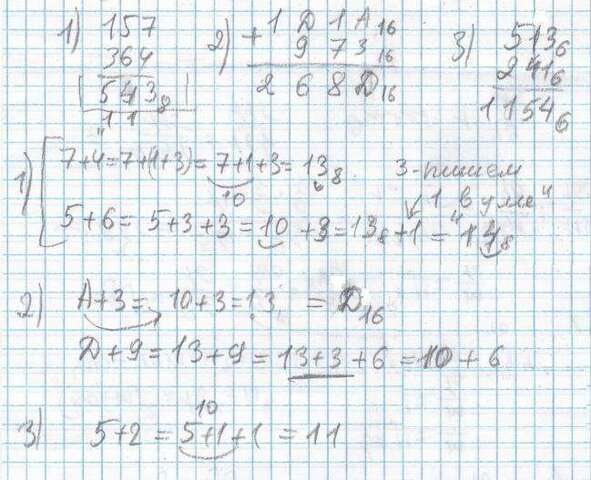 1) 157
364
543₈
11
2) + 1 D 1 A₁₆
9 7 3₁₆
2 6 8 D₁₆
3) 513₆
241₆
1154₆
1) 7+4=7+(1+3)= 7+1+3=13₈ 3-пишем
10 1 в уме"
5+6= 5+3+3=10+3=13₈+1="14₈
2) A+3= 10+3=13 = D₁₆
D+9=13+9=13+3+6=10+6
10
3) 5+2=5+1+1=11